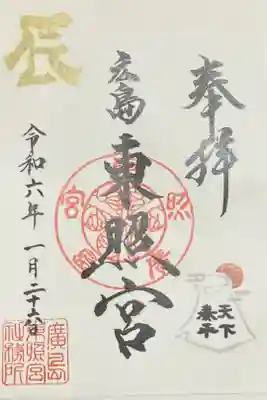 奉拝
天下
泰平
広島
東照宮
辰
令和六年 一月二十六日
廣島
東照宮
社務所